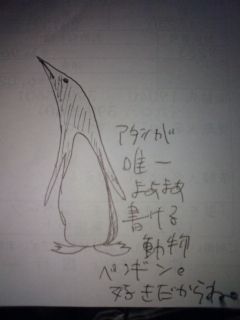 アタシが
唯一
まぁまぁ
書ける
動物
ペンギン。
好きだからね。